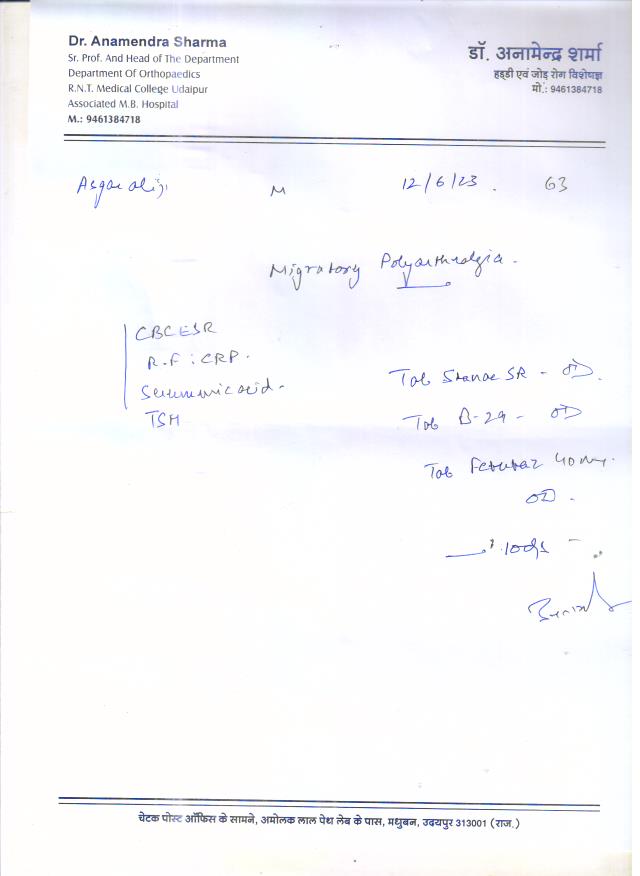 Dr. Anamendra Sharma
Sr. Prof. And Head of The Department
Department Of Orthopaedics
R.N.T. Medical College Udaipur
Associated M.B. Hospital
M.: 9461384718
डॉ. अनामेन्द्र शर्मा
हड्डी एवं जोड़ रोग विशेषज्ञ
मो.: 9461384718
Asgar aliji M 12/6/23. 63
Migratory Polyarthralgia -
CBC ESR
R.F : CRP.
Serum uric acid -
TSH
Tab SR - OD.
Tab B-29 - OD
Tab 40 mg.
OD -
10 days -
चेटक पोस्ट ऑफिस के सामने, अमोलक लाल पेथ लेब के पास, मधुबन, उदयपुर 313001 (राज.)